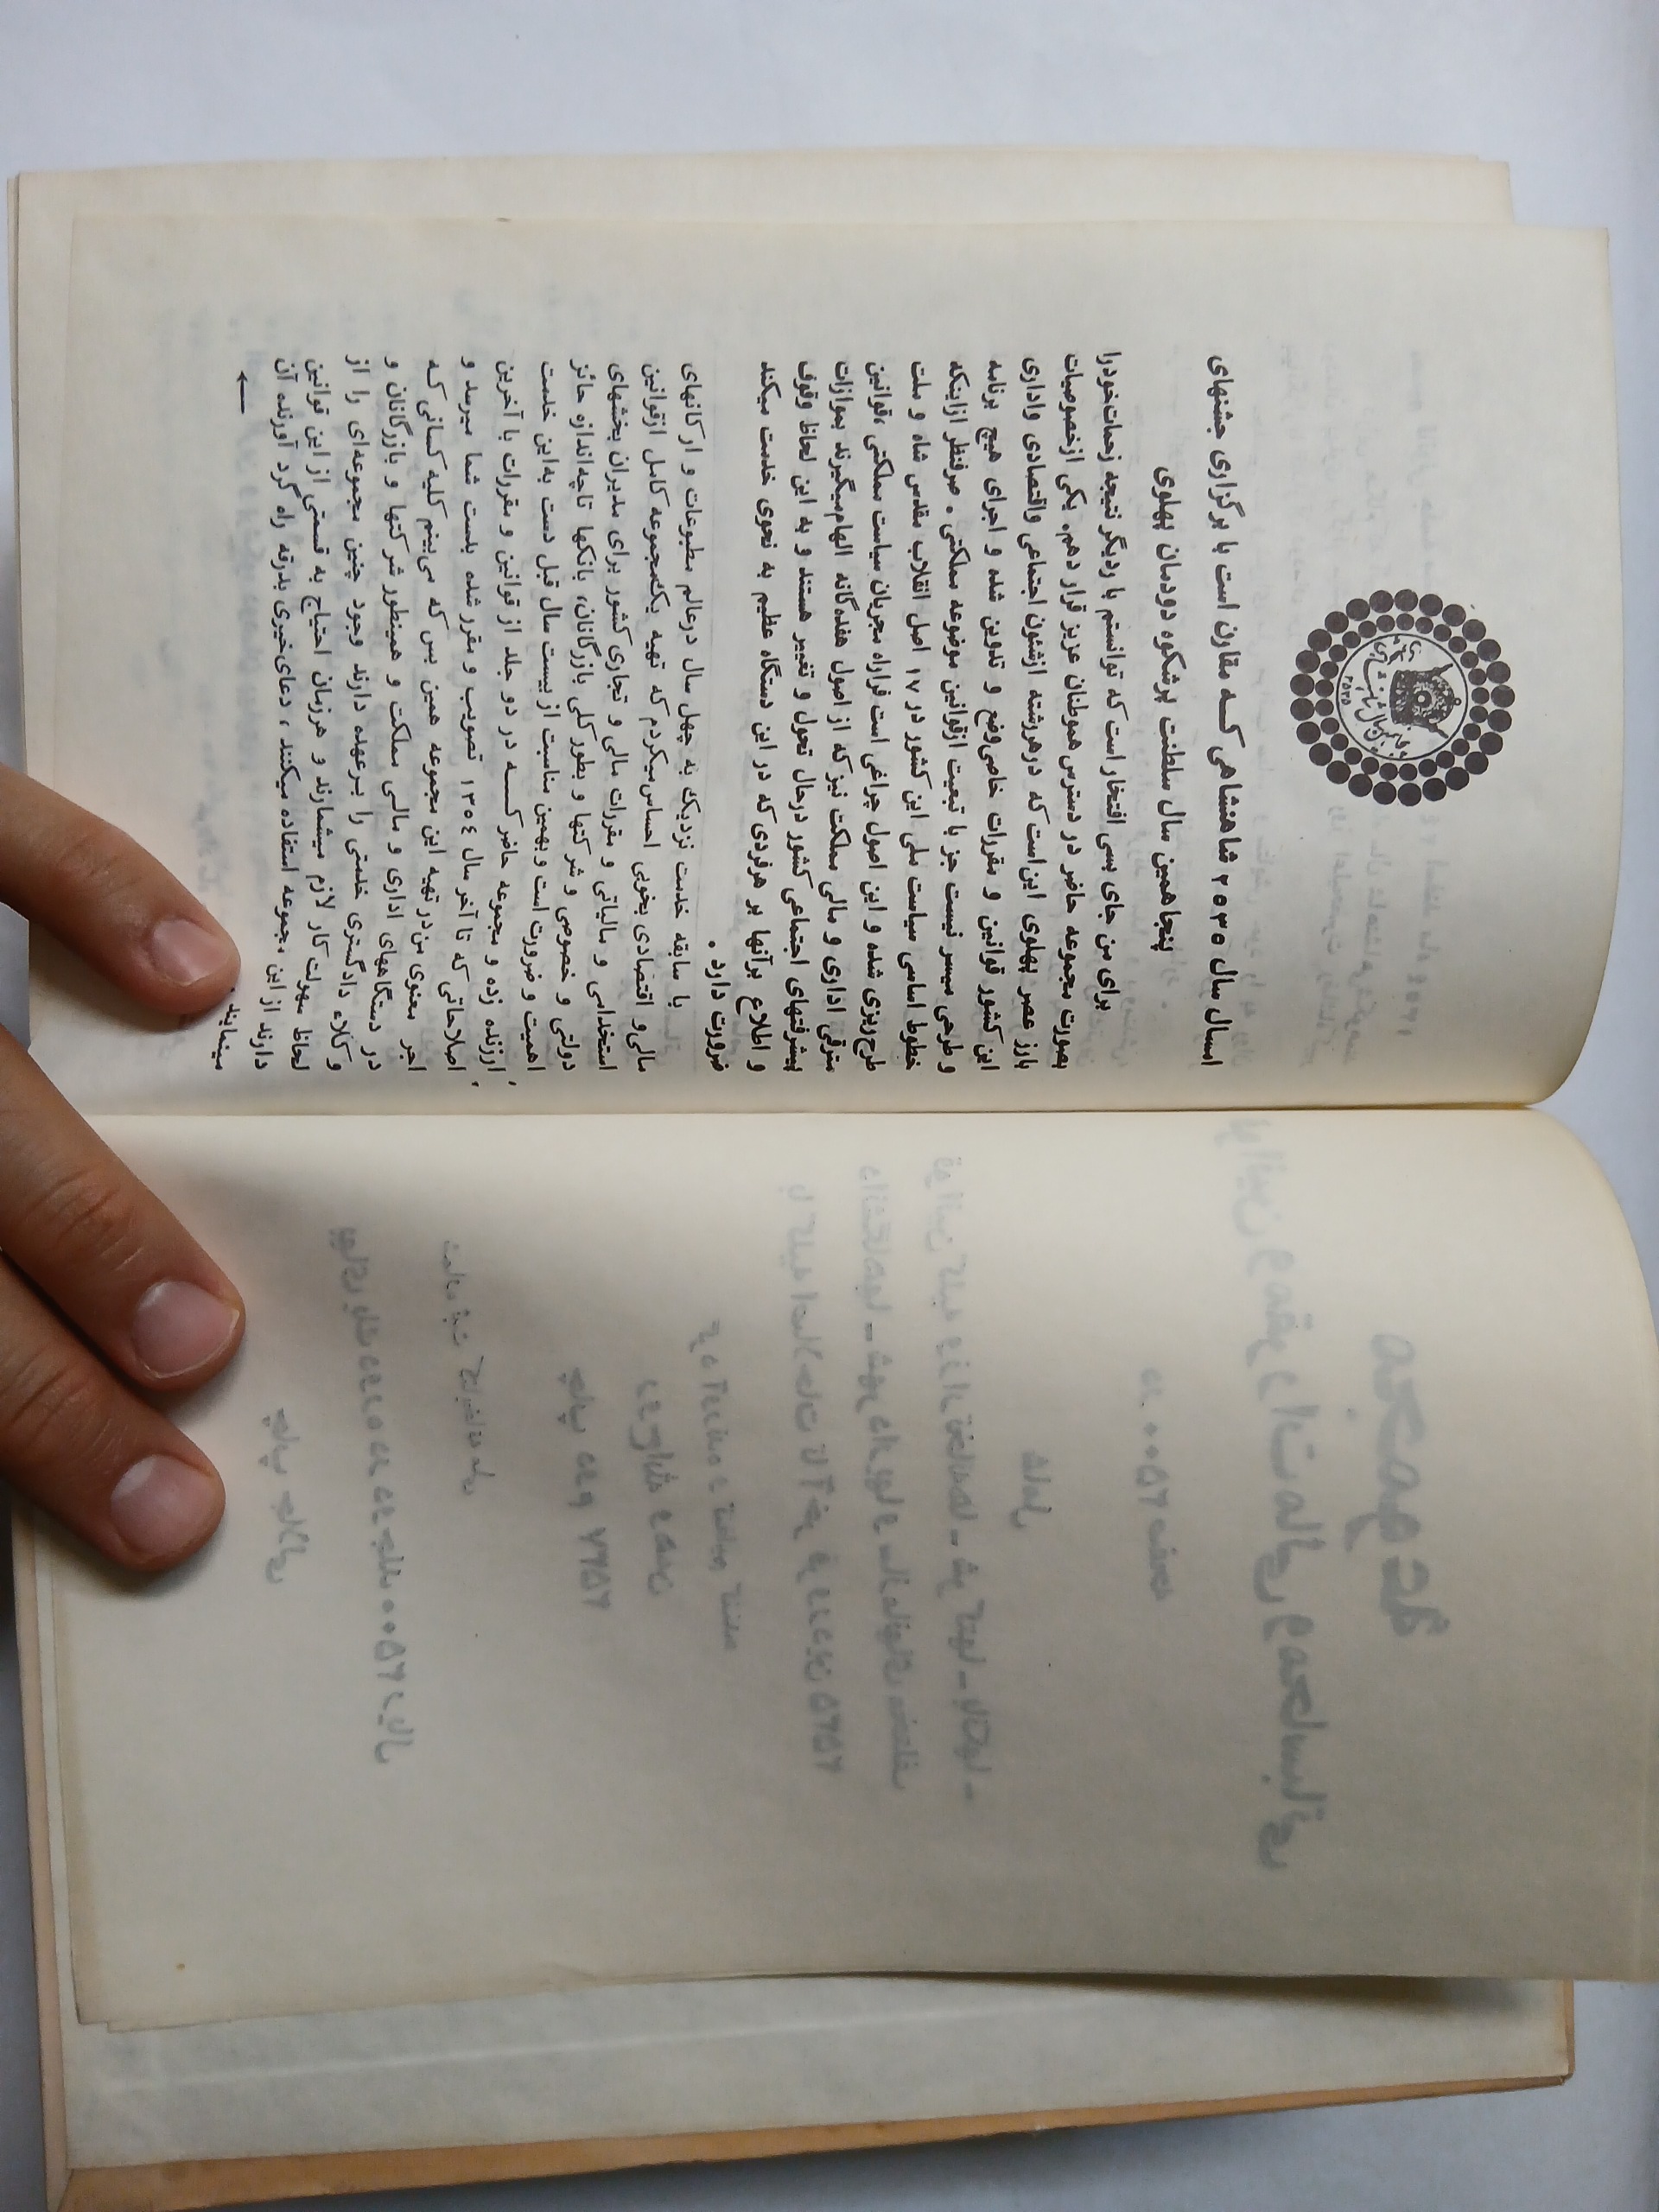 ۲۵۳۵
امسال سال ۲۵۳۵ شاهنشاهی کـه مقارن است با برگزاری جشنهای
پنجاهمین سال سلطنت پرشکوه دودمان پهلوی
برای من جای بسی افتخار است که توانستم با ردیگر نتیجه زحمات‌خودرا
بصورت مجموعه حاضر در دسترس هموطنان عزیز قرار دهم. یکی ازخصوصیات
بارز عصر پهلوی این‌است که درهررشته ازشئون اجتماعی واقتصادی واداری
این کشور قوانین و مقررات خاصی‌وضع و تدوین شده و اجرای هیچ برنامه
و طرحی میسر نیست جز با تبعیت ازقوانین موضوعه مملکتی . صرفنظر ازاینکه
خطوط اساسی سیاست ملی این کشور در ۱۷ اصل انقلاب مقدس شاه و ملت
طرح‌ریزی شده و این اصول چراغی است فراراه مجریان سیاست مملکتی ،قوانین
مترقی اداری و مالی مملکت نیز که از اصول هفده‌گانه الهام‌میگیرند بموازات
پیشرفتهای اجتماعی کشور درحال تحول و تغییر هستند و به این لحاظ وقوف
و اطلاع برآنها بر هرفردی که در این دستگاه عظیم به نحوی خدمت میکند
ضرورت دارد .
با سابقه خدمت نزدیک به چهل سال درعالم مطبوعات و ارکانهای
مالی‌و اقتصادی بخوبی احساس‌میکردم که تهیه یک‌مجموعه کامل ازقوانین
استخدامی و مالیاتی و مقررات مالی و تجاری کشور برای مدیران بخشهای
دولتی و خصوصی و شرکتها و بطور کلی بازرگانان، بانکها تاچه‌اندازه حائز
اهمیت و ضرورت است و بهمین مناسبت از بیست سال قبل دست به‌این خدمت
ارزنده زده و مجموعه حاضر کــه در دو جلد از قوانین و مقررات با آخرین
اصلاحاتی که تا آخر سال ۱۳۵٤ تصویب و مقرر شده بدست شما میرسد و
اجر معنوی من‌در تهیه این مجموعه همین بس که می‌بینم کلیه کسانی کـه
در دستگاههای اداری و مالـی مملکت و همینطور شرکتها و بازرگانان و
و کلاء دادگستری خدمتی را بـرعهده دارند وجود چنین مجموعه‌ای را از
لحاظ سهولت‌کار لازم میشمارند و هرزمان احتیاج به قسمتی از این قوانین
دارند از این مجموعه استفاده میکنند ، دعای‌خیری بدرقه راه گرد آورنده آن
مینمایند .
←